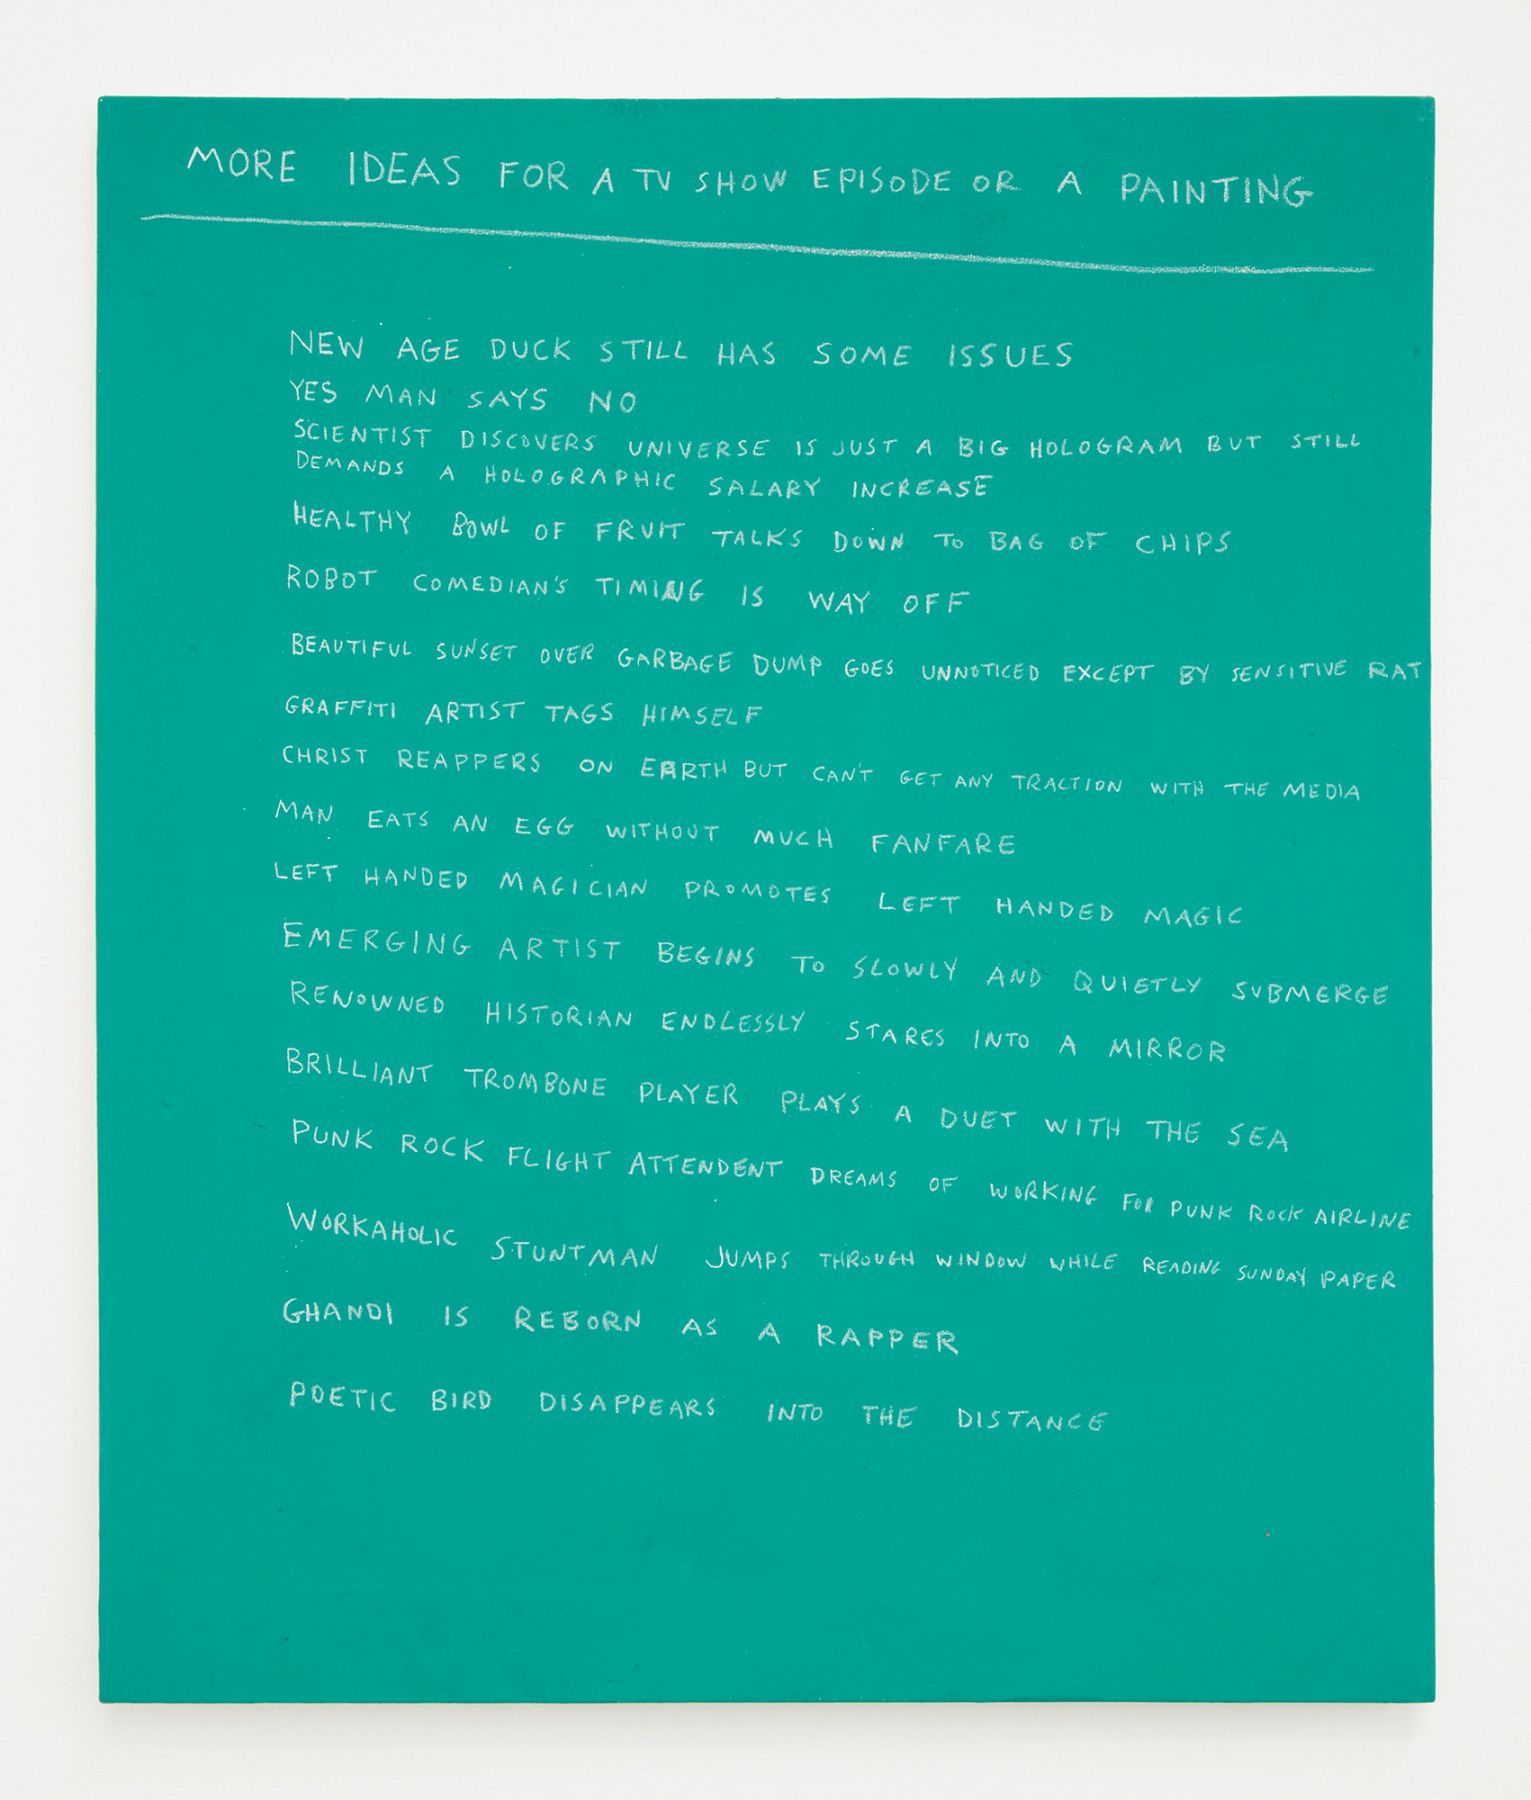 MORE IDEAS FOR A TV SHOW EPISODE OR A PAINTING
NEW AGE DUCK STILL HAS SOME ISSUES
YES MAN SAYS NO
SCIENTIST DISCOVERS UNIVERSE IS JUST A BIG HOLOGRAM BUT STILL
DEMANDS A HOLOGRAPHIC SALARY INCREASE
HEALTHY BOWL OF FRUIT TALKS DOWN TO BAG OF CHIPS
ROBOT COMEDIAN'S TIMING IS WAY OFF
BEAUTIFUL SUNSET OVER GARBAGE DUMP GOES UNNOTICED EXCEPT BY SENSITIVE RAT
GRAFFITI ARTIST TAGS HIMSELF
CHRIST REAPPERS ON EARTH BUT CAN'T GET ANY TRACTION WITH THE MEDIA
MAN EATS AN EGG WITHOUT MUCH FANFARE
LEFT HANDED MAGICIAN PROMOTES LEFT HANDED MAGIC
EMERGING ARTIST BEGINS TO SLOWLY AND QUIETLY SUBMERGE
RENOWNED HISTORIAN ENDLESSLY STARES INTO A MIRROR
BRILLIANT TROMBONE PLAYER PLAYS A DUET WITH THE SEA
PUNK ROCK FLIGHT ATTENDENT DREAMS OF WORKING FOR PUNK ROCK AIRLINE
WORKAHOLIC STUNTMAN JUMPS THROUGH WINDOW WHILE READING SUNDAY PAPER
GHANDI IS REBORN AS A RAPPER
POETIC BIRD DISAPPEARS INTO THE DISTANCE